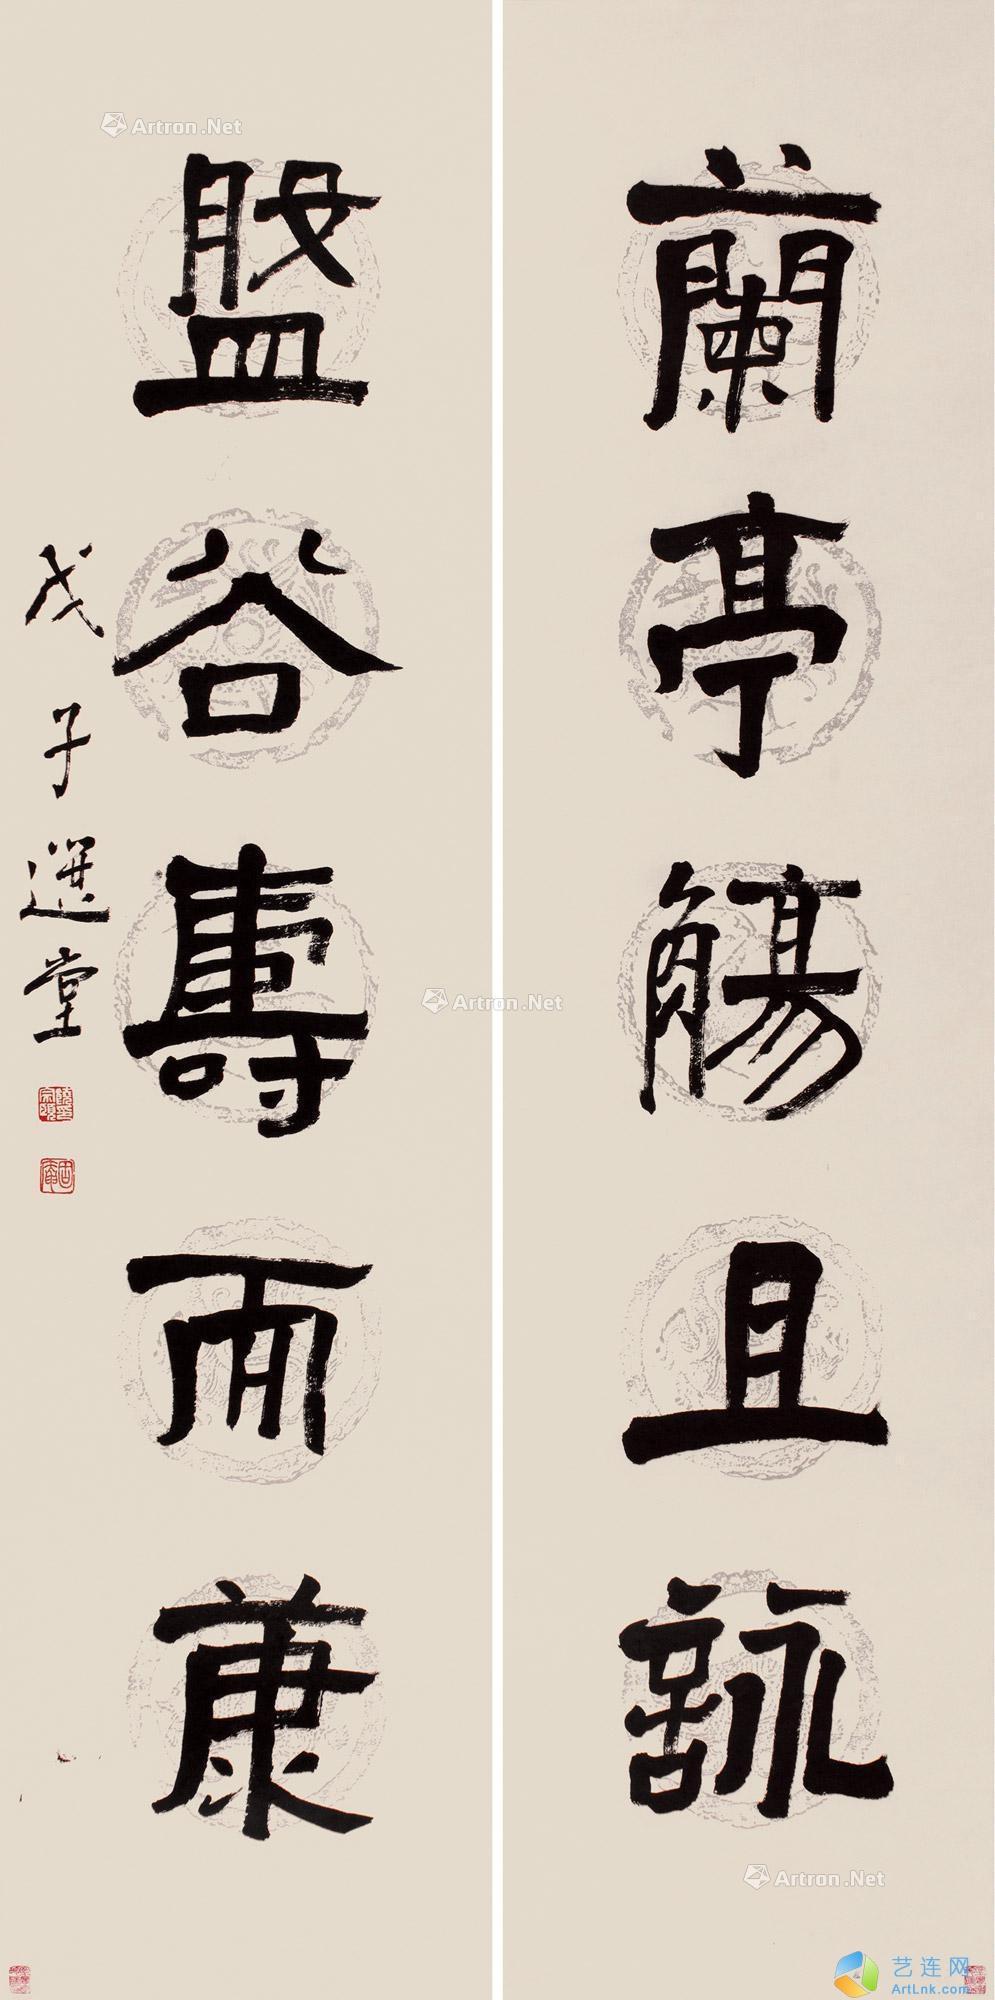 蘭亭觴且詠
盤谷壽而康
戊子選堂
Artron.Net
Artron.Net
Artron.Net
艺连网
ArtLnk.com